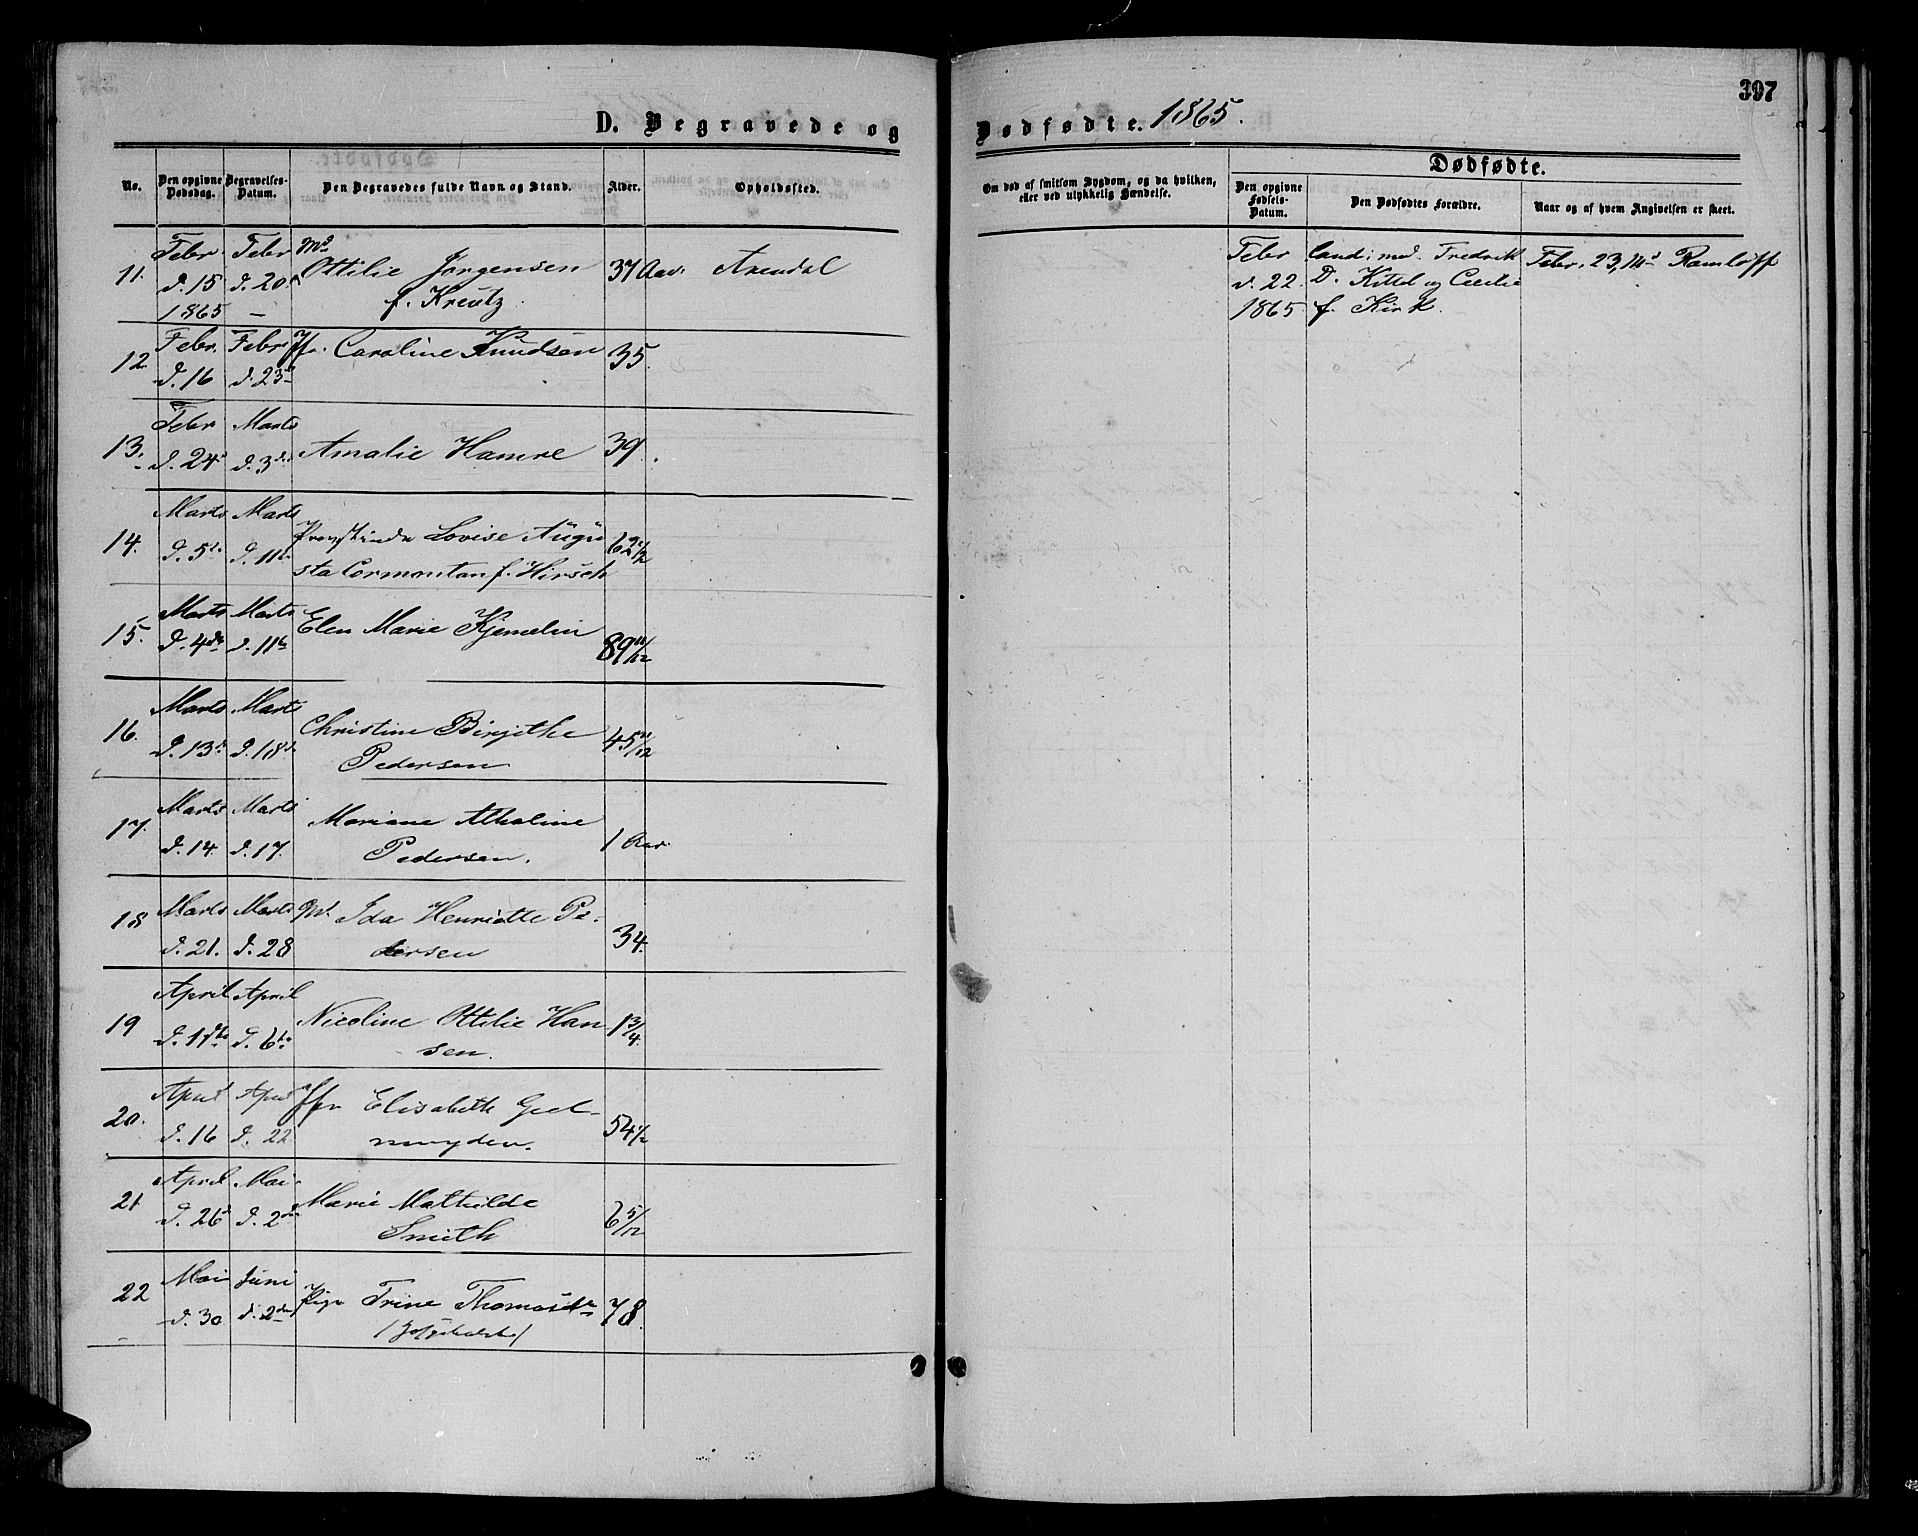 397
D. Begravede og
Dødfødte. 1865.
No.
Den opgivne Dødsdag.
Begravelses-Datum.
Den Begravedes fulde Navn og Stand.
Alder.
Opholdssted.
Om død af smitsom Sygdom, og da hvilken, eller ved ulykkelig Hændelse.
Dødfødte.
Den opgivne Fødsels-Datum.
Den Dødfødtes Forældre.
Naar og af hvem Angivelsen er skeet.
11. Febr. d. 15 1865 Febr d. 20 Md Ottilie Jørgensen f. Kreutz. 37 Aar. Arendal
Febr d. 22. 1865. Cand: med. Fredrik D. Kittel og Cecilie f. Kirk. Febr. 23, 14d Ramløff
12 Febr. d. 16 Febr d. 23d Jfr. Caroline Knudsen 35.
13. Febr d. 24d Marts d. 3die Amalie Hamre 39.
14. Marts d. 5te Marts d. 11te Provstinde Lovise Augu
sta Cormontan f. Hirsch 62 1/2
15. Marts d. 4de Marts d. 11te Elen Marie Kjemelin 89 11/12
16. Marts d. 13d Marts d. 18d Christine Birgithe
Pedersen 45 11/12
17. Marts d. 14. Marts d. 17. Mariane Athaline
Pedersen. 1 Aar.
18 Marts d. 21. Marts d. 28 Md. Ida Henriette Pe-
dersen 34.
19 April d. 1ste April d. 6te Nicoline Ottilie Han
sen. 1 3/4
20. April d. 16 April d. 22 Jfr Elisabeth Geel-
muyden. 54 1/2
21 April d. 26d Mai d. 2den Marie Mathilde
Smith 6 5/12
22 Mai d. 30 Juni d. 2den Pige Trine Thomasdtr 78.